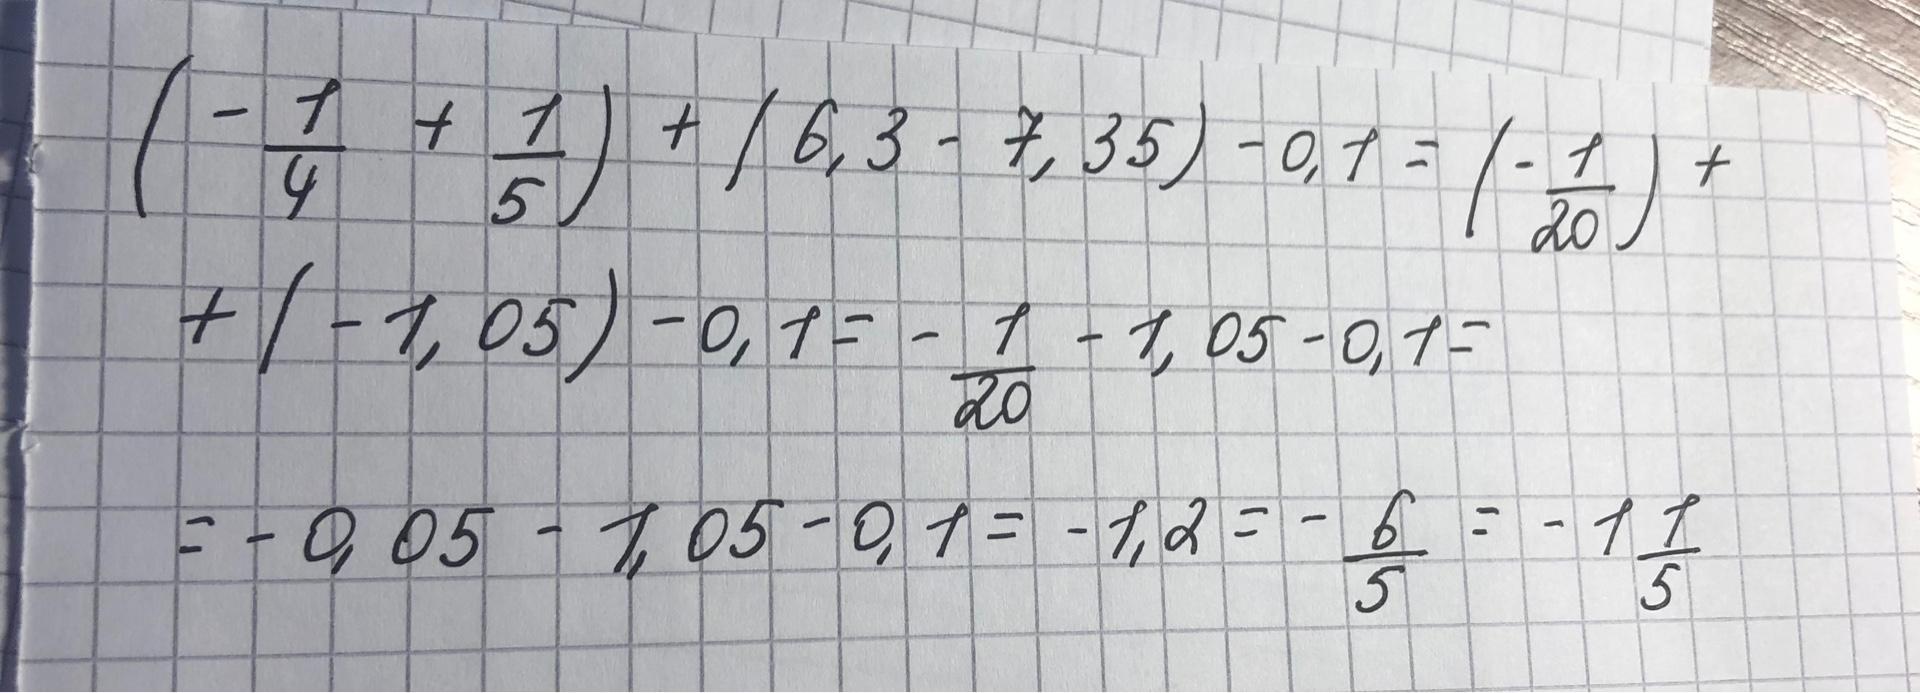 (-1/4 + 1/5) + (6,3 - 7,35) - 0,1 = (-1/20) +
+ (-1,05) - 0,1 = -1/20 - 1,05 - 0,1 =
= -0,05 - 1,05 - 0,1 = -1,2 = -6/5 = -1 1/5